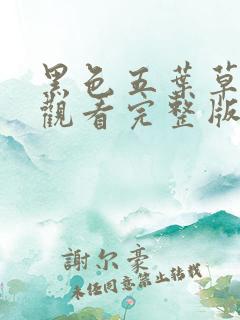 黑色五葉草
觀看完整版
謝尔豪
未任同意禁止转载